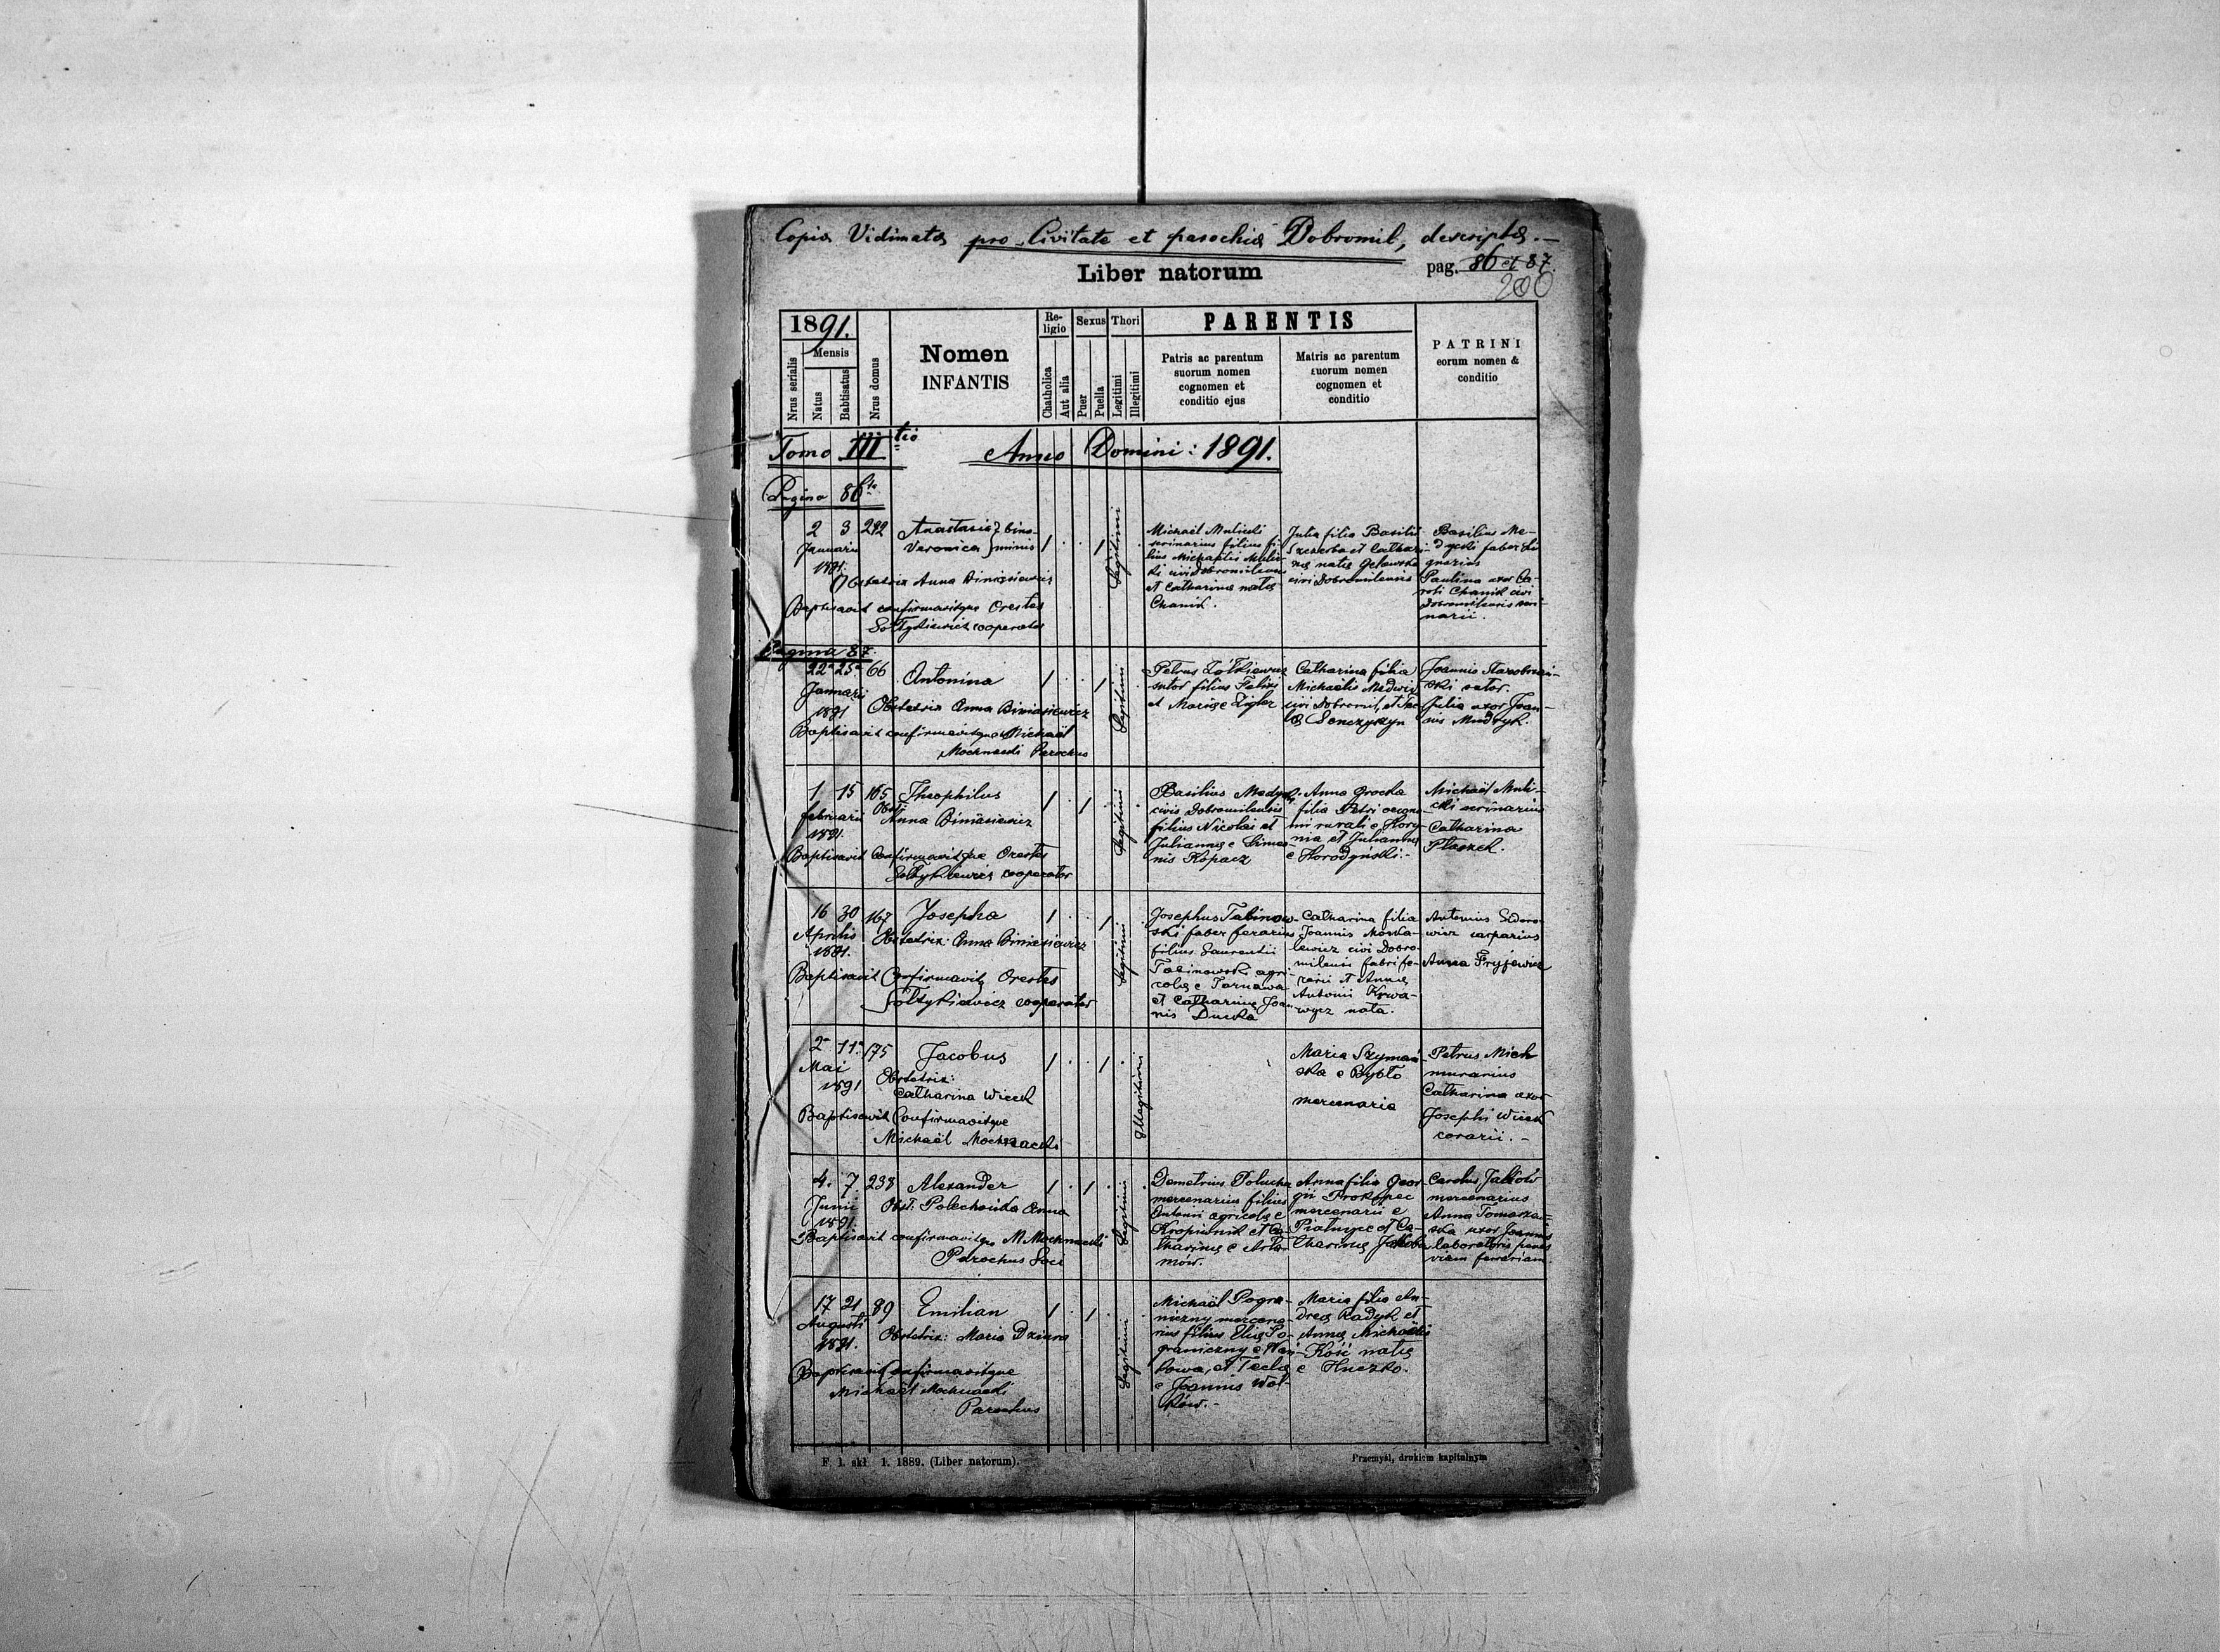 Copia Vidimata pro Civitate et parochia Dobromil, descripta.—
Liber natorum
pag. 86 et 87.
200
1891.
Mensis
Nrus serialis
Natus
Babtisatus
Nrus domus
Nomen
INFANTIS
Re-
ligio
Chatholica
Aut alia
Sexus
Puer
Puella
Thori
Legitimi
Illegitimi
PARENTIS
Patris ac parentum
suorum nomen
cognomen et
conditio ejus
Matris ac parentum
suorum nomen
cognomen et
conditio
PATRINI
eorum nomen &
conditio
Tomo III tio
Anno Domini: 1891.
Pagina 86ta
2 3 292
Januarii
1891.
Anastasia } bino-
Veronica } minis
Obstetrix Anna Biniasiewicz
Baptisavit confirmavitque Orestes
Sołtykiewicz cooperator
Legitimi
Michaël Mulicki
serinarius filius fi-
lius Michaëlis Mulic-
ki civi Dobromilensis
et Catharina natae
Chanik.
Julia filia Basilii
Szczerba et Cathari-
nae natae
civi Dobromilensis
Basilius Me-
dycki faber li-
gnarius
Paulina uxor Ca-
roli Chanik civi
Dobromilensis seri-
narii.
Pagina 87.
22 25 66
Januari
1891
Antonina
Obstetrix Anna Biniasiewicz
Baptisavit confirmavitque Michaël
Mochnacki Parochus
Legitimi
Petrus Żółkiewicz
sutor filius Felix
et Mariae Zigler
Catharina filia
Michaëlis Medwid
civi Dobromil, et The-
lae Senczyszyn
Joannis
ski sutor.
Julia uxor Joan-
nis Mudryk.
1 15 165
februarii
1891.
Theophilus
Obst:
Anna Biniasiewicz
Baptisavit Confirmavitque Orestes
Sołtykiewicz cooperator
Legitimi
Basilius Medyck.
civis Dobromilensis
filius Nicolai et
Julianna e Simeo-
nis Kopacz
Anna Grocka
filia Petri
mi rurali e
nia et Julianna
e Horodyński.-
Michaël Muli-
cki serinarius
Catharina
Ptaszek.
16 30 167
Aprilis
1891.
Josepha
Obstetrix: Anna Biniasiewicz
Baptisavit Confirmavitq Orestes
Sołtykiewicz cooperator
Legitimi
Josephus Talinow-
ski faber ferarius
filius Laurentii
Talinowski agri-
colae e Tarnawa
et Catharina Joan-
nis Ducka
Catharina filia
Joannis Mowka-
lewicz civi Dobro-
milensis fabri fe-
rarii et Annae
Antonii Krwa-
wycz nata.
Antonius Sidoro-
wicz carparius
Anna Fryjewicz
2 11 175
Mai
1891
Jacobus
Obstetrix:
Catharina Wicek
Baptisavit Confirmavitque
Michaël Mochnacki
Illegitimi
Maria Szymań-
ska e Bybło
mercenaria
Petrus Mich
murarius
Catharina uxor
Josephi Wicek
corarii.-
4. 7. 238
Junii
1891.
Alexander
Obst: Polechońska Anna
Baptisavit confirmavitque M Mochnacki
Parochus Loci
Legitimi
Demetrius Polucha
mercenarius filius
Antonii agricola e
Kropiwnik et Ca-
tharinae e Arła-
mów.
Anna filia Geor-
gii Prokopec
mercenarii e
Piatnyce et Ca-
tharinae Jakoba
Carolus Jakków
mercenarius
Anna Tomasze-
ska uxor Joannis
laboratoris penes
viam ferrariam.
17 21 89
Augusti
1891.
Emilian
Obstetrix: Maria Dziura
Baptisavit Confirmavitque
Michaël Mochnacki
Parochus
Legitimi
Michaël Pogra-
niczny mercena-
rius filius Eliae Po-
graniczny e Wań-
kowa, et Teclae
e Joannis Woł-
ków.-
Maria filia An-
dreae Radyk et
Annae Michaëlis
Kość natae
e Huczko.
F. 1. skł. 1. 1889. (Liber natorum).
Przemyśl, drukiem kapitulnym